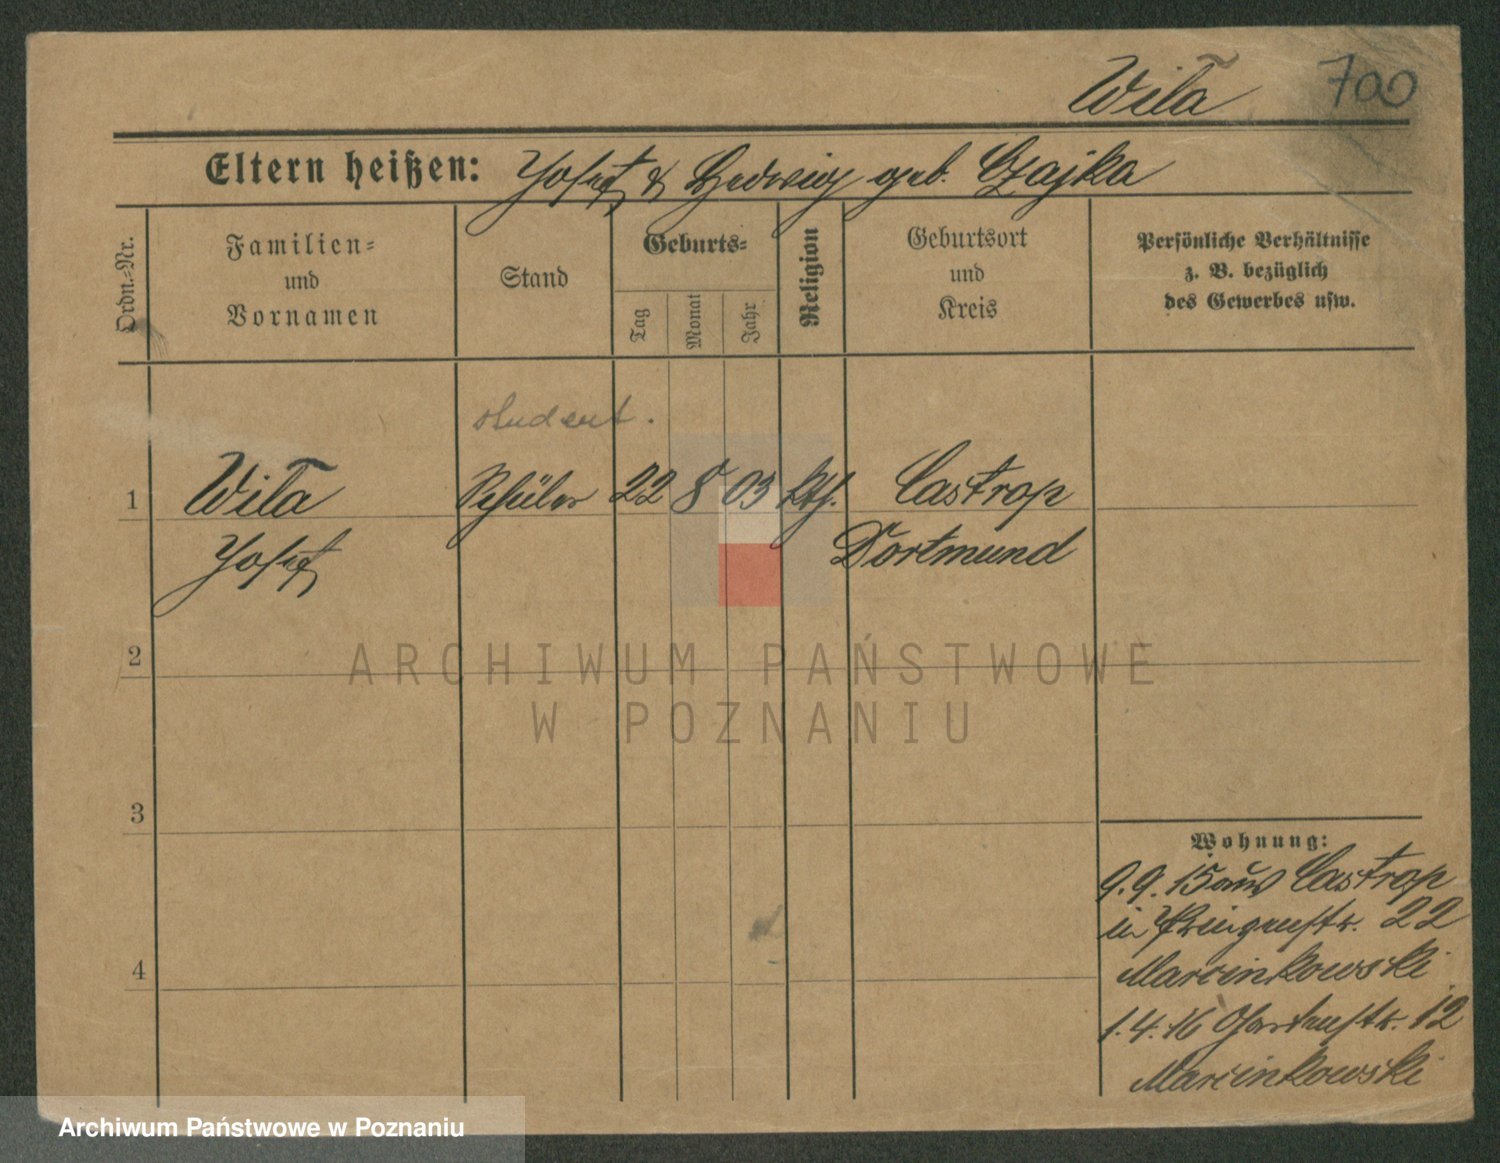 Wila 700
Eltern heißen: Josef & Hedwig geb. Czajka
Ordn.-Nr.
Familien-
und
Vornamen
Stand
Geburts-
Tag
Monat
Jahr
Religion
Geburtsort
und
Kreis
Persönliche Verhältnisse
z. B. bezüglich
des Gewerbes usw.
student.
1 Wila Schüler 22 8 03 kth. Castrop
Josef Dortmund
2
3
4
Wohnung:
9.9.15 aus Castrop
in 22
Marcinkowski
1.4.16 Gartenstr. 12
Marcinkowski
ARCHIWUM PAŃSTWOWE
W POZNANIU
Archiwum Państwowe w Poznaniu